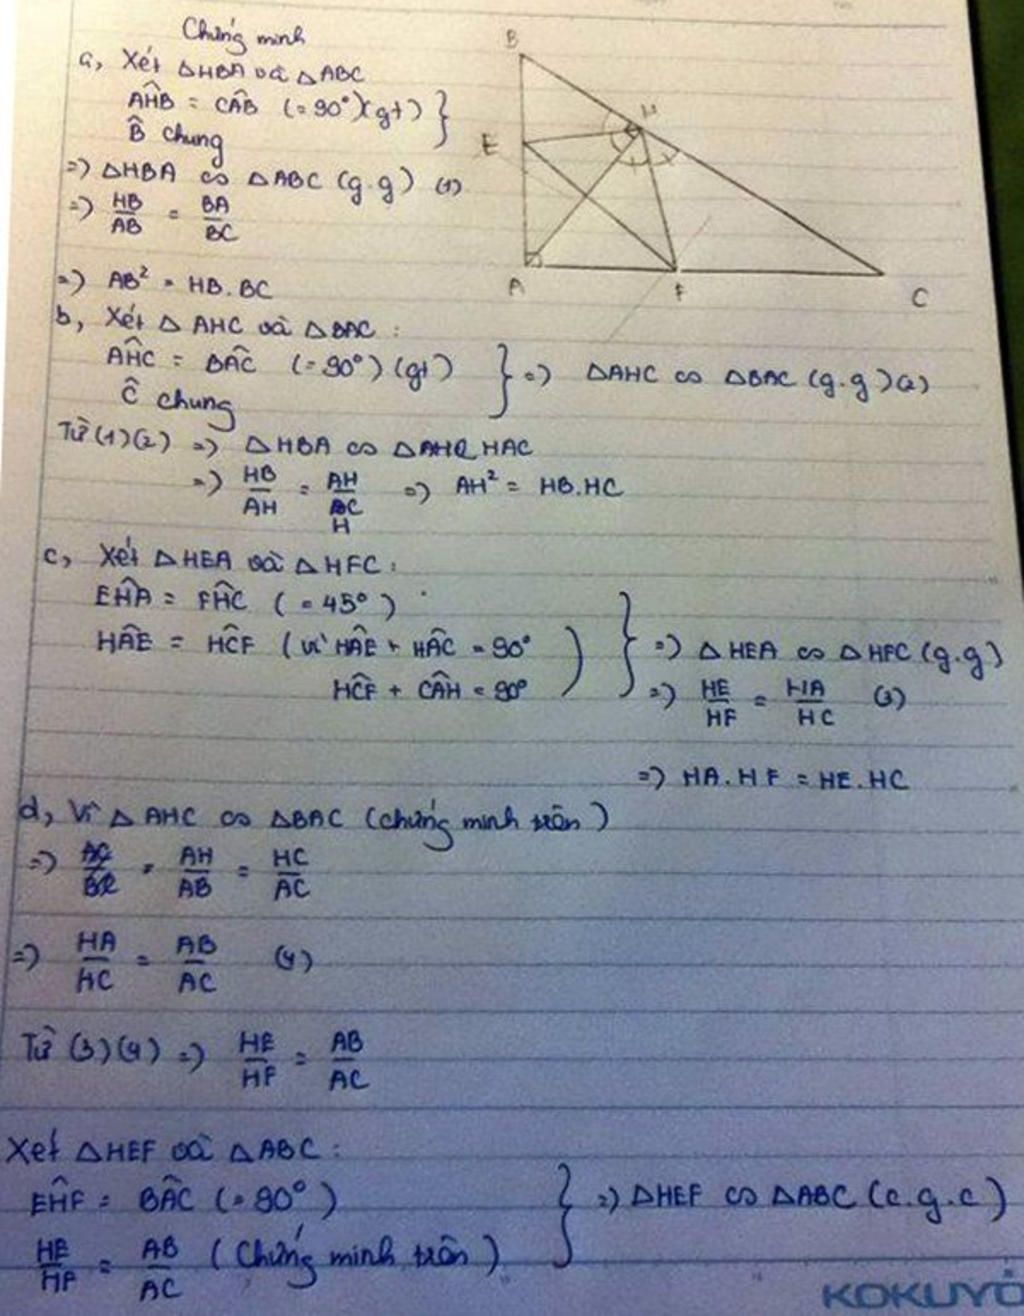 Chứng minh
a, Xét △HBA và △ABC
AĤB = CÂB (=90°)(gt) }
B̂ chung
=> △HBA ∽ △ABC (g.g) (1)
=> HB/AB = BA/BC
=> AB² = HB.BC
B
H
E
A
F
C
b, Xét △AHC và △BAC :
AĤC = BÂC (=90°) (gt) } => △AHC ∽ △BAC (g.g)(2)
Ĉ chung
Từ (1)(2) => △HBA ∽ △HAC
=> HB/AH = AH/HC => AH² = HB.HC
c, Xét △HEA và △HFC :
EĤA = FĤC (=45°)
HÂE = HĈF (vì HÂE + HÂC = 90°
HĈF + CÂH = 90° ) } => △HEA ∽ △HFC (g.g)
=> HE/HF = HA/HC (3)
=> HA.HF = HE.HC
d, Vì △AHC ∽ △BAC (chứng minh trên)
=> AH/AB = HC/AC
=> HA/HC = AB/AC (4)
Từ (3)(4) => HE/HF = AB/AC
Xét △HEF và △ABC :
EĤF = BÂC (=90°) } => △HEF ∽ △ABC (c.g.c)
HE/HF = AB/AC (Chứng minh trên)
KOKUYO